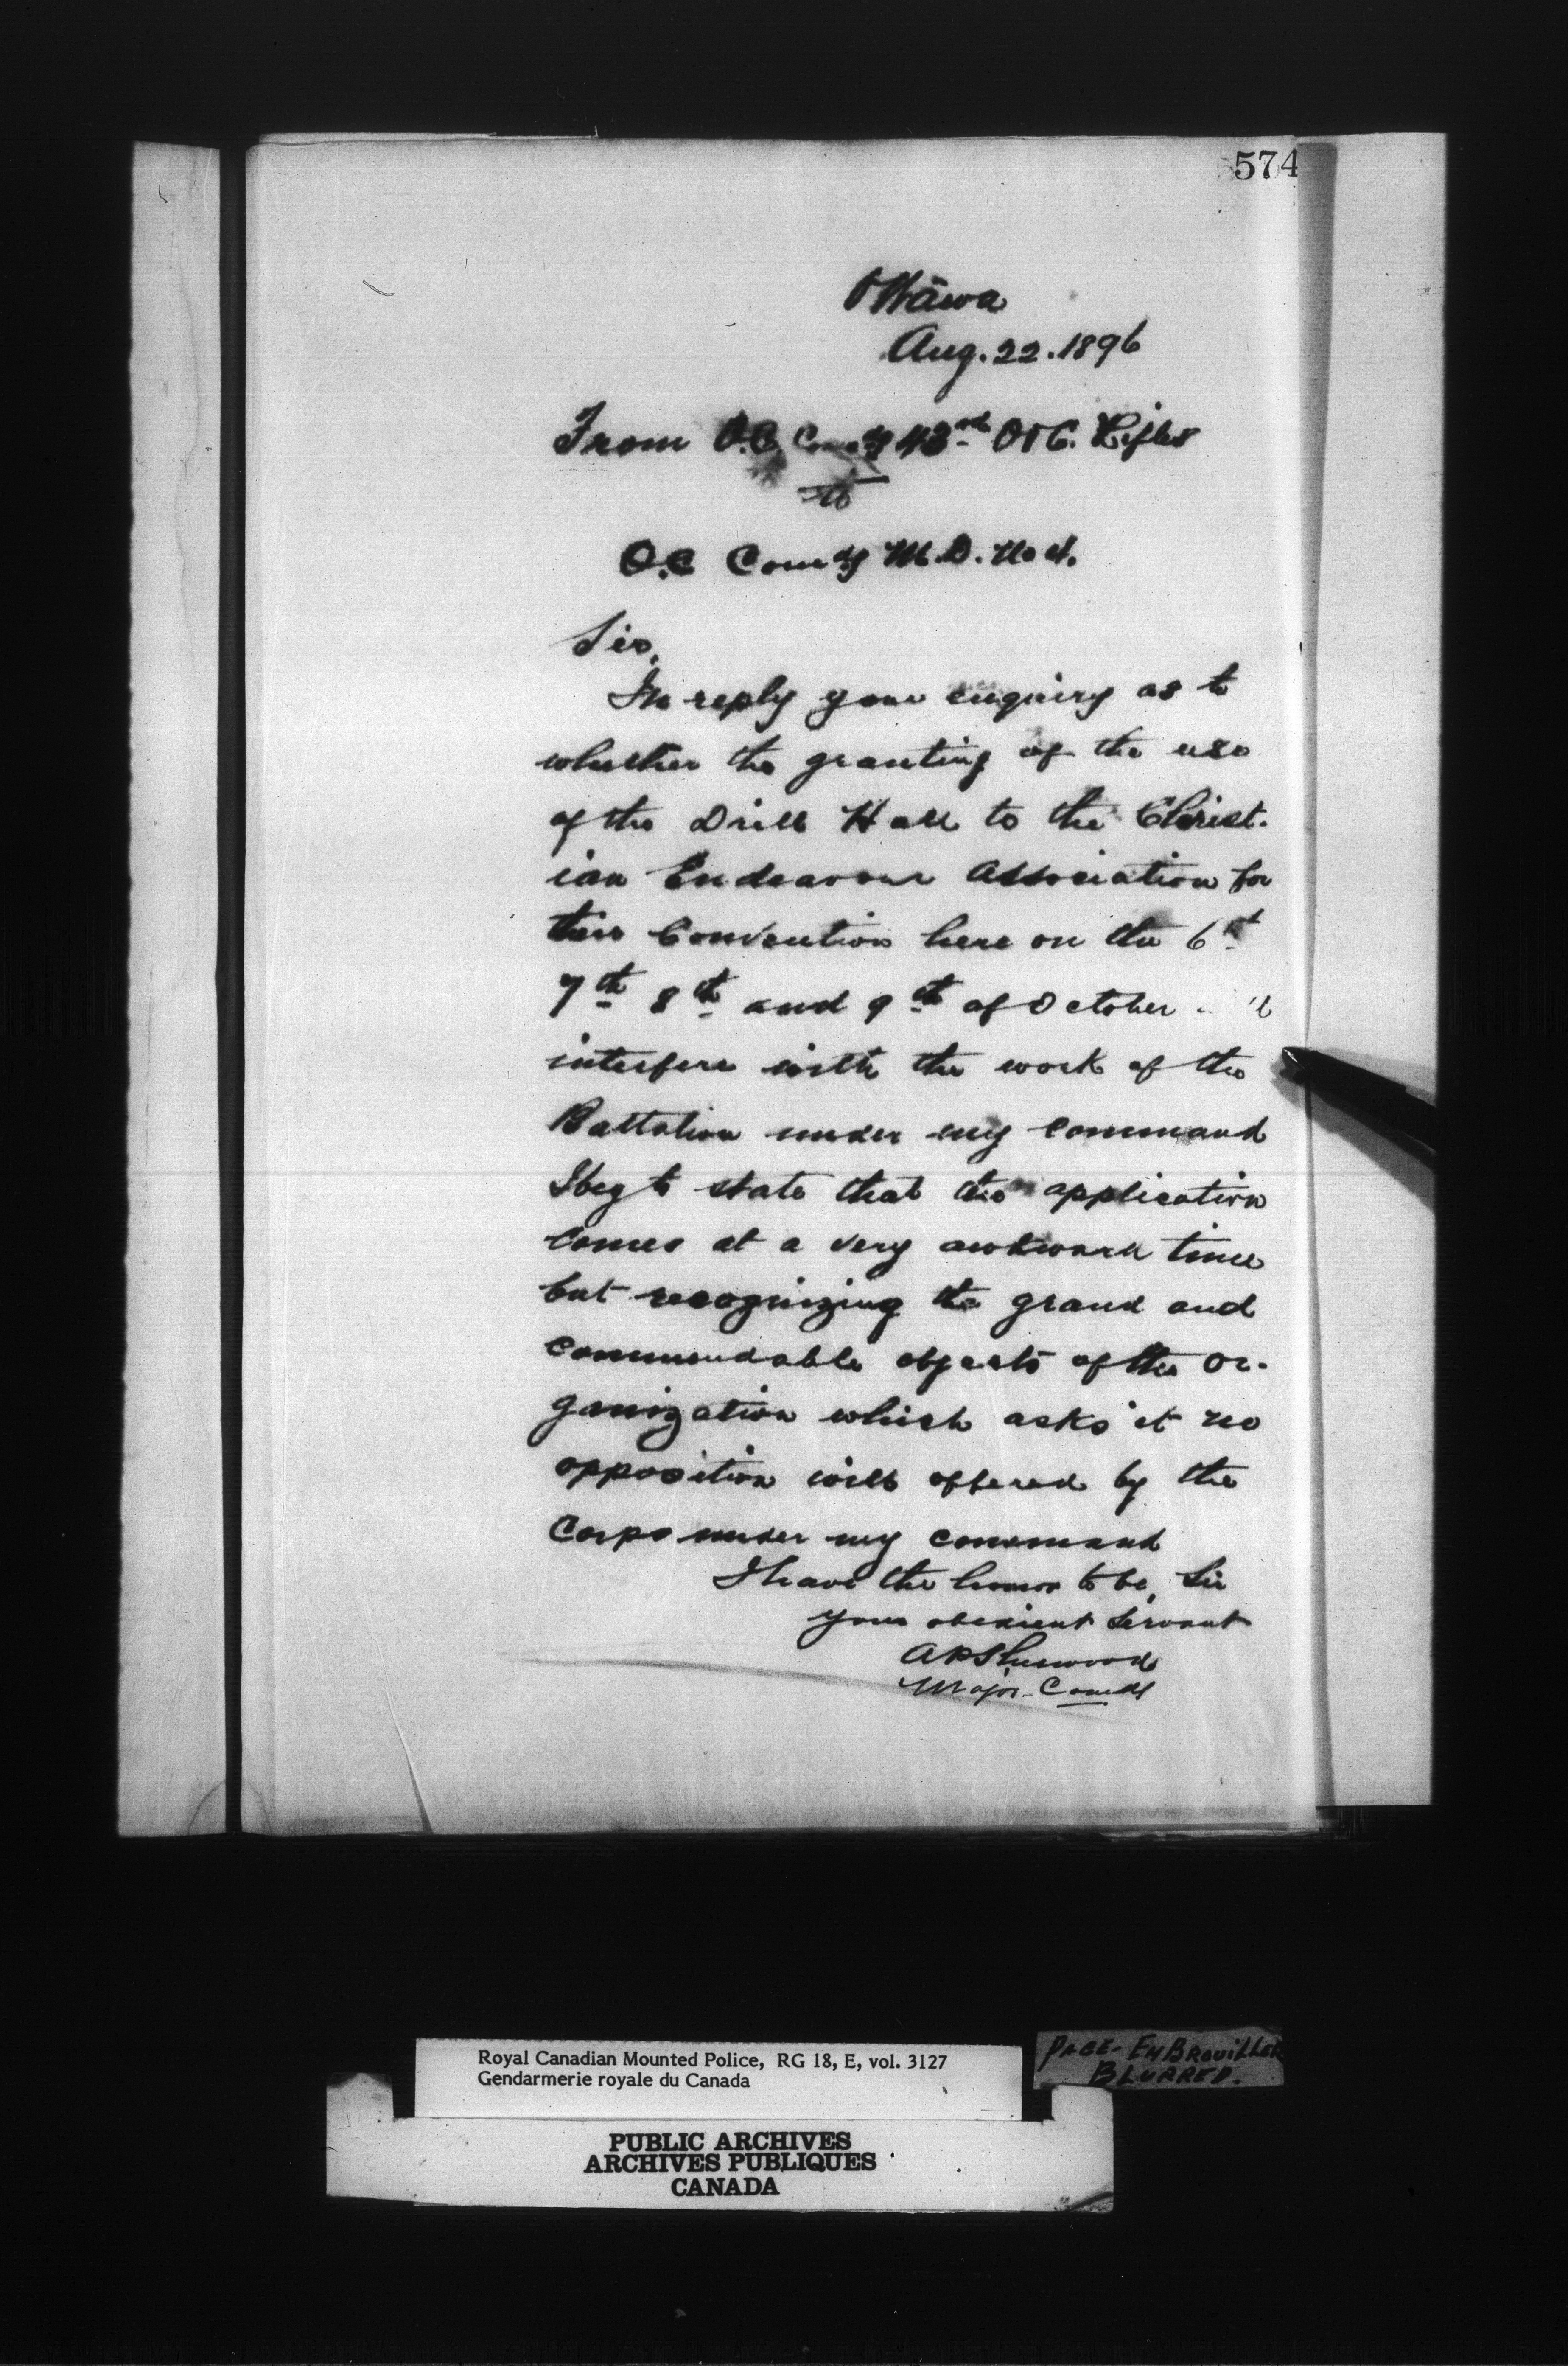 574
Ottawa
Aug. 22. 1896
From O.C. Comdg 43rd O & C. Rifles
to
O.C Comdg M.D. No 4.
Sir,
In reply your enquiry as to
whether the granting of the use
of the Drill Hall to the Christ-
ian Endeavour Association for
their Convention here on the 6th
7th 8th and 9th of October
interfere with the work of the
Battalion under my command
I beg to state that the application
comes at a very awkward time
but recognizing the grand and
commendable objects of the or-
ganization which asks it no
opposition will offered by the
Corps under my command
I have the honor to be, Sir
your obedient servant
A P Sherwood
Major Comdg
Royal Canadian Mounted Police, RG 18, E, vol. 3127
Gendarmerie royale du Canada
PAGE - EMBROUILLER
BLURRED.
PUBLIC ARCHIVES
ARCHIVES PUBLIQUES
CANADA